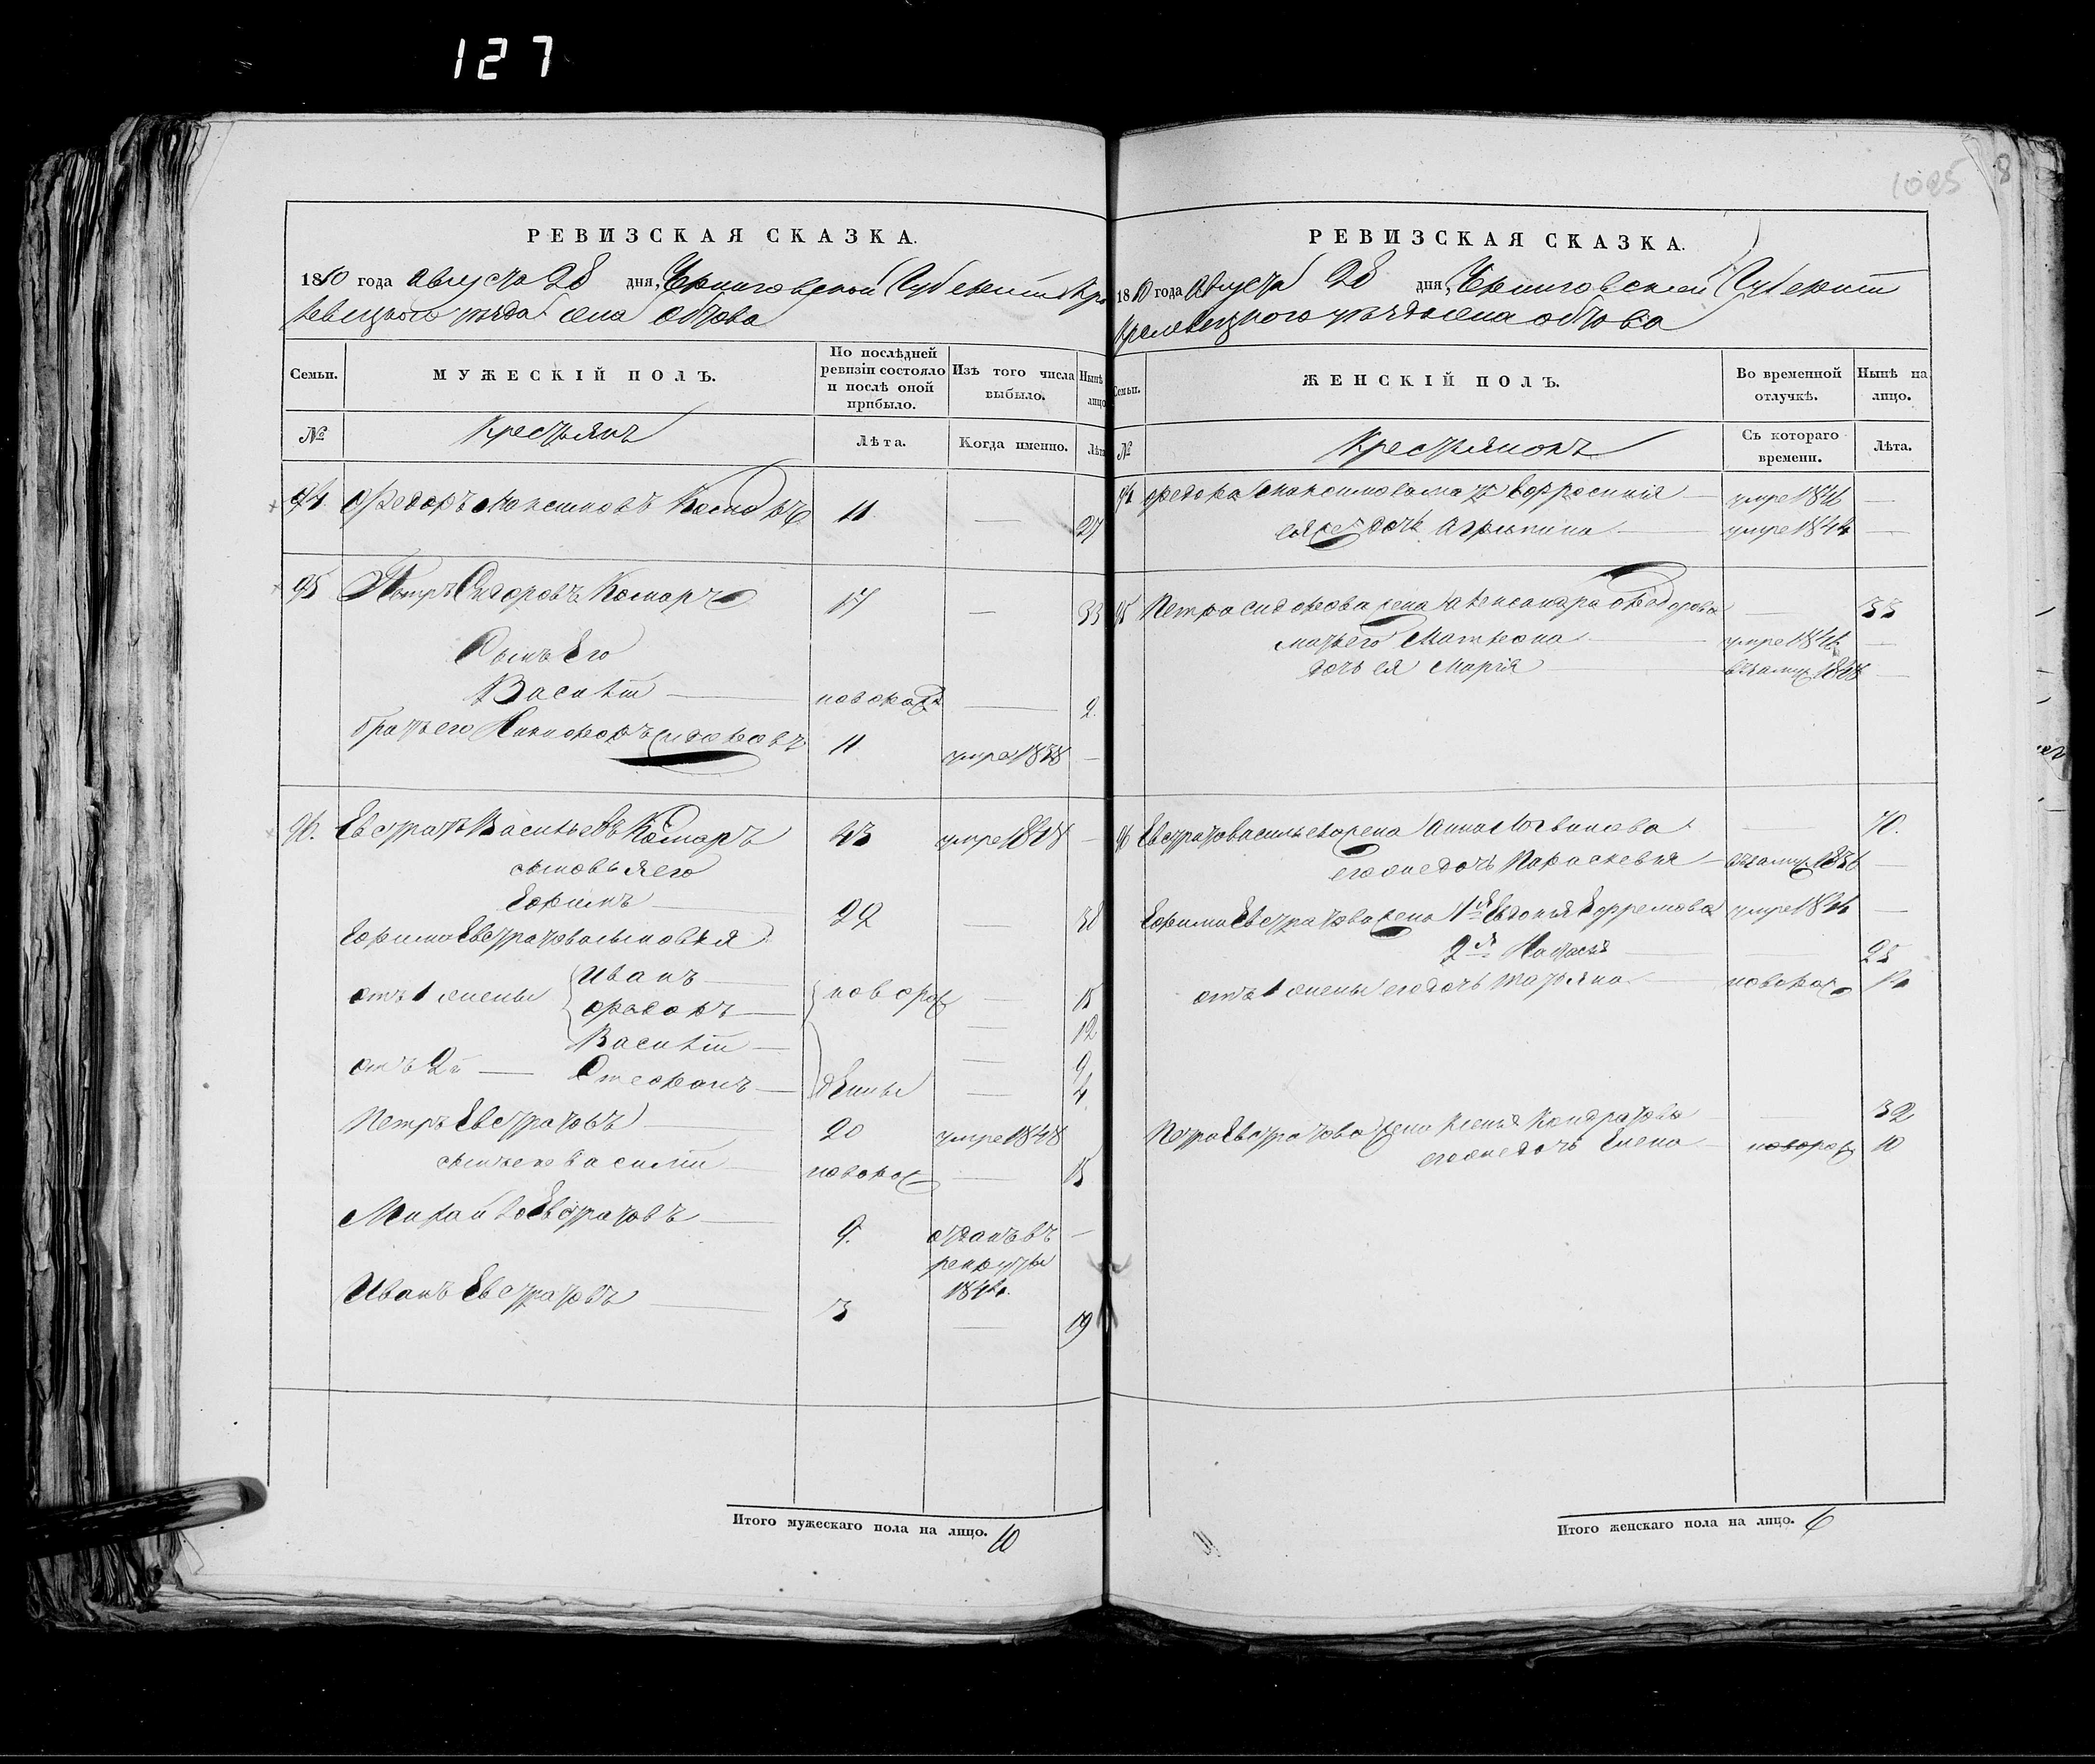 127
1025 8
РЕВИЗСКАЯ СКАЗКА.
1850 года августа 28 дня, Черниговской Губернии Кро
левецкого уезда села Обтова
Семьи. МУЖЕСКІЙ ПОЛЪ. По послѣдней ревизіи состояло и послѣ оной прибыло. Изъ того числа выбыло. Нынѣ на лицо
№ Крестьянъ Лѣта. Когда именно. Лѣта
94 Федоръ Максимовъ Комаръ 11 — 27
95 Петръ Сидоровъ Комаръ 17 — 33
Сынъ Его
Василій — новорож — 2
братъ его Никифоръ Сидоровъ 11 умре 1838 —
96. Евстратъ Васильевъ Комаръ 43 умре 1848 —
сыновья его
Ефимъ — 22 — 38
Ефима Евстратова сыновья
отъ 1 жены Иванъ — новорож — 15
Федоръ — — 12
Василій — — 9
отъ 2й — Стефанъ — — 4
Петръ Евстратовъ — 20 умре 1848
сынъ его Василій новорож — 15
Михайло Евстратовъ — 9. отданъ въ —
рекруты
184
Иванъ Евстратовъ — 3 — 19
Итого мужескаго пола на лицо. 10
РЕВИЗСКАЯ СКАЗКА.
1850 года Августа 28 дня, Черниговской Губерніи
Кролевецкого уезда села Обтова
Семьи. ЖЕНСКІЙ ПОЛЪ. Во временной отлучкѣ. Нынѣ на лицо.
№ Крестьянокъ Съ котораго времени. Лѣта.
94 Федора Максимова мать Ефросинія — умре 1846 —
ея же дочь Агрипина — умре 1844 —
95 Петра Сидорова жена Александра Федорова 33
мать его Матрона — умре 184 —
дочь ея Марія — въ замуж 1848 —
96 Евстрата Васильева жена Анна Логвинова — 70.
его же дочь Параскевія — въ замуж 1836 —
Ефима Евстратова жена 1я Евдокія Ефремова умре 184 —
2я Настасья — — 25
отъ 1 жены его дочь Татьяна — новорож 14
Петра Евстратова жена Ксенія Кондратова — 32
его же дочь Елена — новорож 10
Итого женскаго пола на лицо. 6